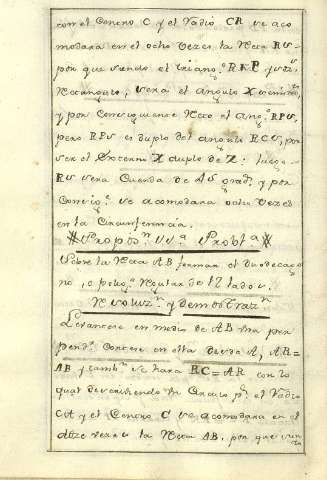 con el Centro C y el Radio CR se aco
modara en el ocho vezes la Recta RS
por que siendo el triang.º RFP
Rectangulo, sera el angulo X semirecto,
y por consiguiente Recto el ang.º RPS,
pero RPS es duplo del angulo RCS, por
ser el Externo X duplo de Z: luego
RS sera Cuerda de 45 grad.s y por
Consig.e se acomodara ocho vezes
en la Circunferencia.
Propos.n Probl.a
Sobre la Recta AB formar el duodecago
no, o polig.º Regular de 12 lados.
Resoluz.n y demostraz.n
Levantese en medio de AB una per
pend.r Cortese en esta desde A, AR=
AB y tamb.n se hara RC=AR con lo
qual descriviendo un Circulo p.r el Radio
CA y el Centro C se acomodara en el
doze vezes la Recta AB, por que